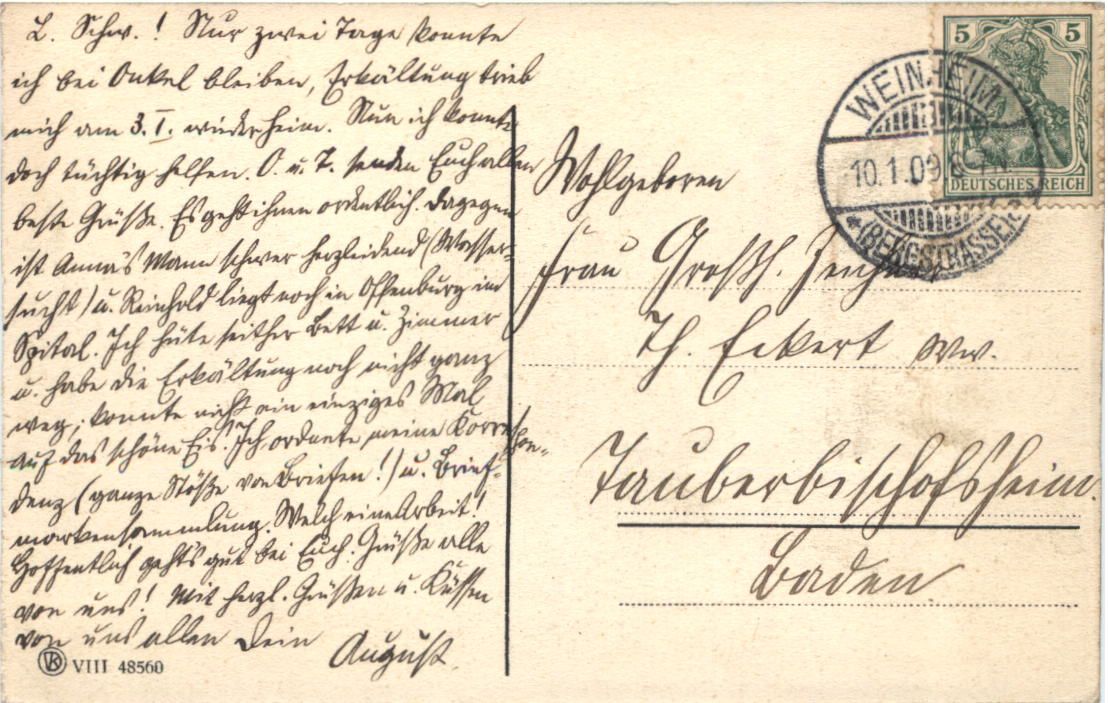 L. Schw.! Nur zwei Tage konnte
ich bei Onkel bleiben, Erkältung trieb
mich am 3. I. wieder heim. Nun ich konnte
doch tüchtig helfen. O. u. T. senden Euch allen
beste Grüße. Es geht ihnen ordentlich. Dagegen
ist Anna's Mann schwer herzleidend (Wasser-
sucht) u. Reinhold liegt noch in Offenburg im
Spital. Ich hüte seither Bett u. Zimmer
u. habe die Erkältung noch nicht ganz
weg; konnte nicht ein einziges Mal
auf das schöne Eis. Ich ordnete meine Korrespon-
denz (ganze Stöße von Briefen!) u. Brief-
markensammlung. Welch eine Arbeit!
Hoffentlich geht's gut bei Euch. Grüße alle
von uns! Mit herzl. Grüßen u. Küssen
von uns allen Dein August.
VK VIII 48560
5 5
DEUTSCHES REICH
WEINHEIM
10.1.09
* (BERGSTRASSE)
Wohlgeboren
Frau Großh.
Th. Eckert Ww.
Tauberbischofsheim.
Baden